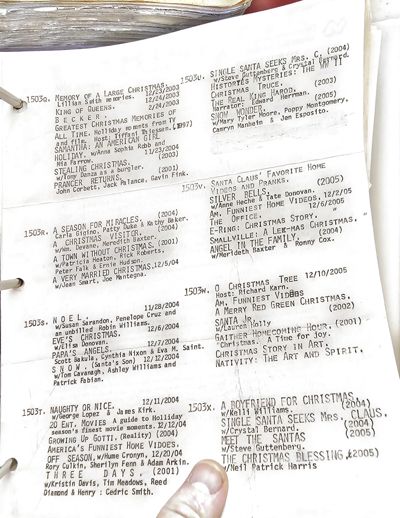 1503q. MEMORY OF A LARGE CHRISTMAS.
Lillian Smith memories. 12/23/2003
KING OF QUEENS. 12/24/2003
BECKER. 2/24/2003
GREATEST CHRISTMAS MEMORIES OF
ALL TIME. Holiday moments from TV
and film. Host: Tiffani Thiessen. (1997)
SAMANTHA: AN AMERICAN GIRL
HOLIDAY. w/Anna Sophia Robb and
Mia Farrow. 11/23/2004
STEALING CHRISTMAS. (2003)
w/Tony Danza as a burgler.
PRANCER RETURNS. (2001)
John Corbett, Jack Palance, Gavin Fink.
1503r. A SEASON FOR MIRACLES. (2004)
Carla Gugino, Patty Duke & Kathy Baker.
A CHRISTMAS VISITOR. (2004)
w/Wm. Devane, Meredith Baxter.
A TOWN WITHOUT CHRISTMAS. (2001)
w/Patricia Heaton, Rick Roberts,
Peter Falk & Ernie Hudson.
A VERY MARRIED CHRISTMAS. 12/5/04
w/Jean Smart, Joe Mantegna.
1503s. NOEL. 11/28/2004
w/Susan Sarandon, Penelope Cruz and
an unbilled Robin Williams.
EVE'S CHRISTMAS. 12/6/2004
w/Elisa Donovan.
PAPA'S ANGELS. 12/7/2004
Scott Bakula, Cynthia Nixon & Eva M. Saint.
SNOW. (Santa's Son) 12/12/2004
w/Tom Cavanagh, Ashley Williams and
Patrick Fabian.
1503t. NAUGHTY OR NICE. 12/11/2004
w/George Lopez & James Kirk.
20 ENT. MOVIES A guide to Holliday
season's finest movie moments. 12/12/04
GROWING UP GOTTI. (Reality) (2004)
AMERICA'S FUNNIEST HOME VDOES.
OFF SEASON. w/Hume Cronyn, 12/20/04
Rory Culkin, Sherilyn Fenn & Adam Arkin.
THREE DAYS. (2001)
w/Kristin Davis, Tim Meadows, Reed
Diamond & Henry : Cedric Smith.
1503u. SINGLE SANTA SEEKS MRS. C. (2004)
w/Steve Guttenberg & Crystal Bernard.
HISTORIES MYSTERIES: THE
CHRISTMAS TRUCE. (2003)
THE REAL KING HAROD.
Narrator: Edward Herrman. (2005)
SNOW WONDER.
w/Mary Tyler Moore, Poppy Montgomery,
Camryn Manheim & Jon Esposito.
1503v. SANTA CLAUS' FAVORITE HOME
VIDEOS AND PRANKS.
SILVER BELLS. (2005)
w/Anne Heche & Tate Donovan.
AM. FUNNIEST HOME VIDEOS. 12/2/05
THE OFFICE. 12/6/2005
E-RING: CHRISTMAS STORY.
SMALLVILLE: A LEK-MAS CHRISTMAS.
ANGEL IN THE FAMILY. (2004)
w/Merideth Baxter & Ronny Cox.
1503w. O CHRISTMAS TREE 12/10/2005
Host: Richard Karn.
AM. FUNNIEST VIDEOS
A MERRY RED GREEN CHRISTMAS.
SANTA JR. (2002)
w/Lauren Holly
GAITHER HOMECOMING HOUR. (2001)
Christmas. A Time for Joy.
CHRISTMAS STORY IN ART.
NATIVITY: THE ART AND SPIRIT.
1503x. A BOYFRIEND FOR CHRISTMAS.
w/Kelli Williams. (2004)
SINGLE SANTA SEEKS MRS. CLAUS.
w/Crystal Bernard. (2004)
MEET THE SANTAS (2005)
w/Steve Guttenberg.
THE CHRISTMAS BLESSING. (2005)
w/Neil Patrick Harris